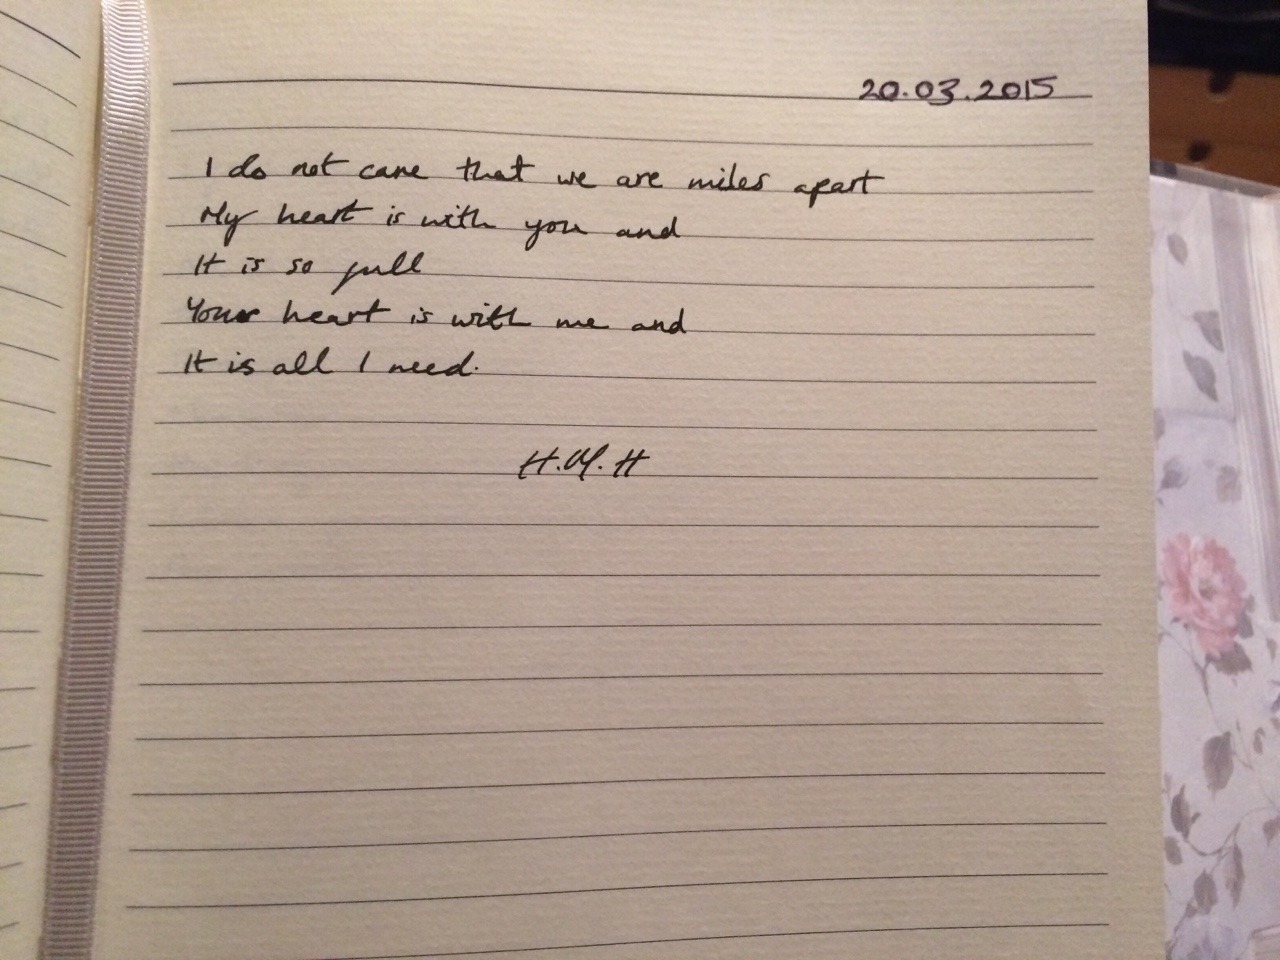 20.03.2015
I do not care that we are miles apart
My heart is with you and
It is so full
Your heart is with me and
It is all I need.
H.M.H